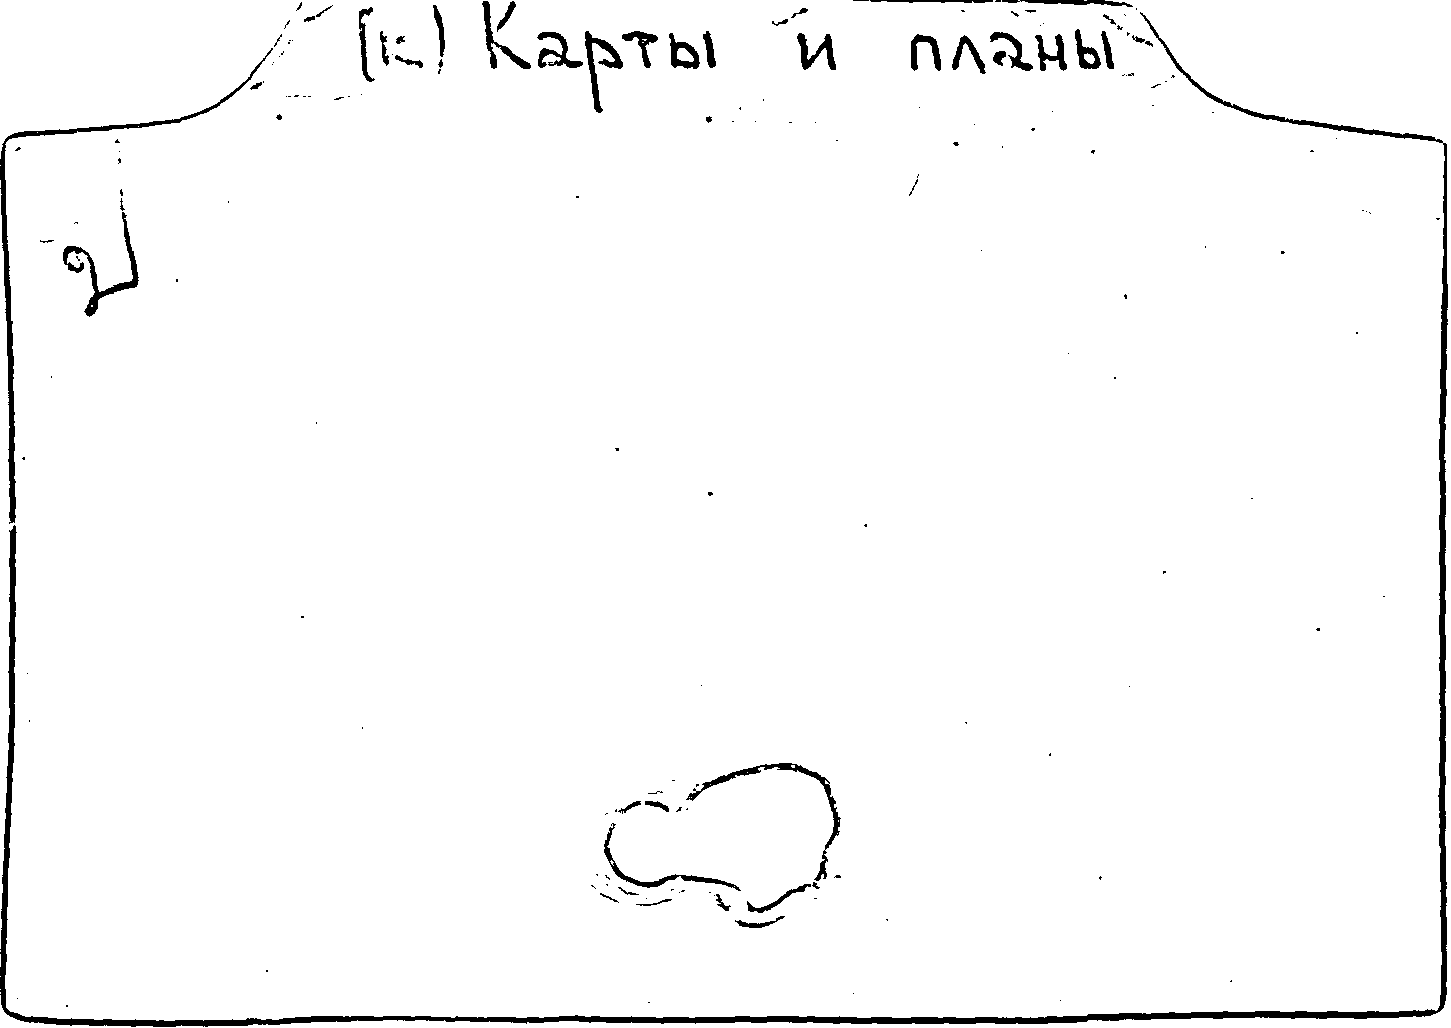 (к) Карты и планы